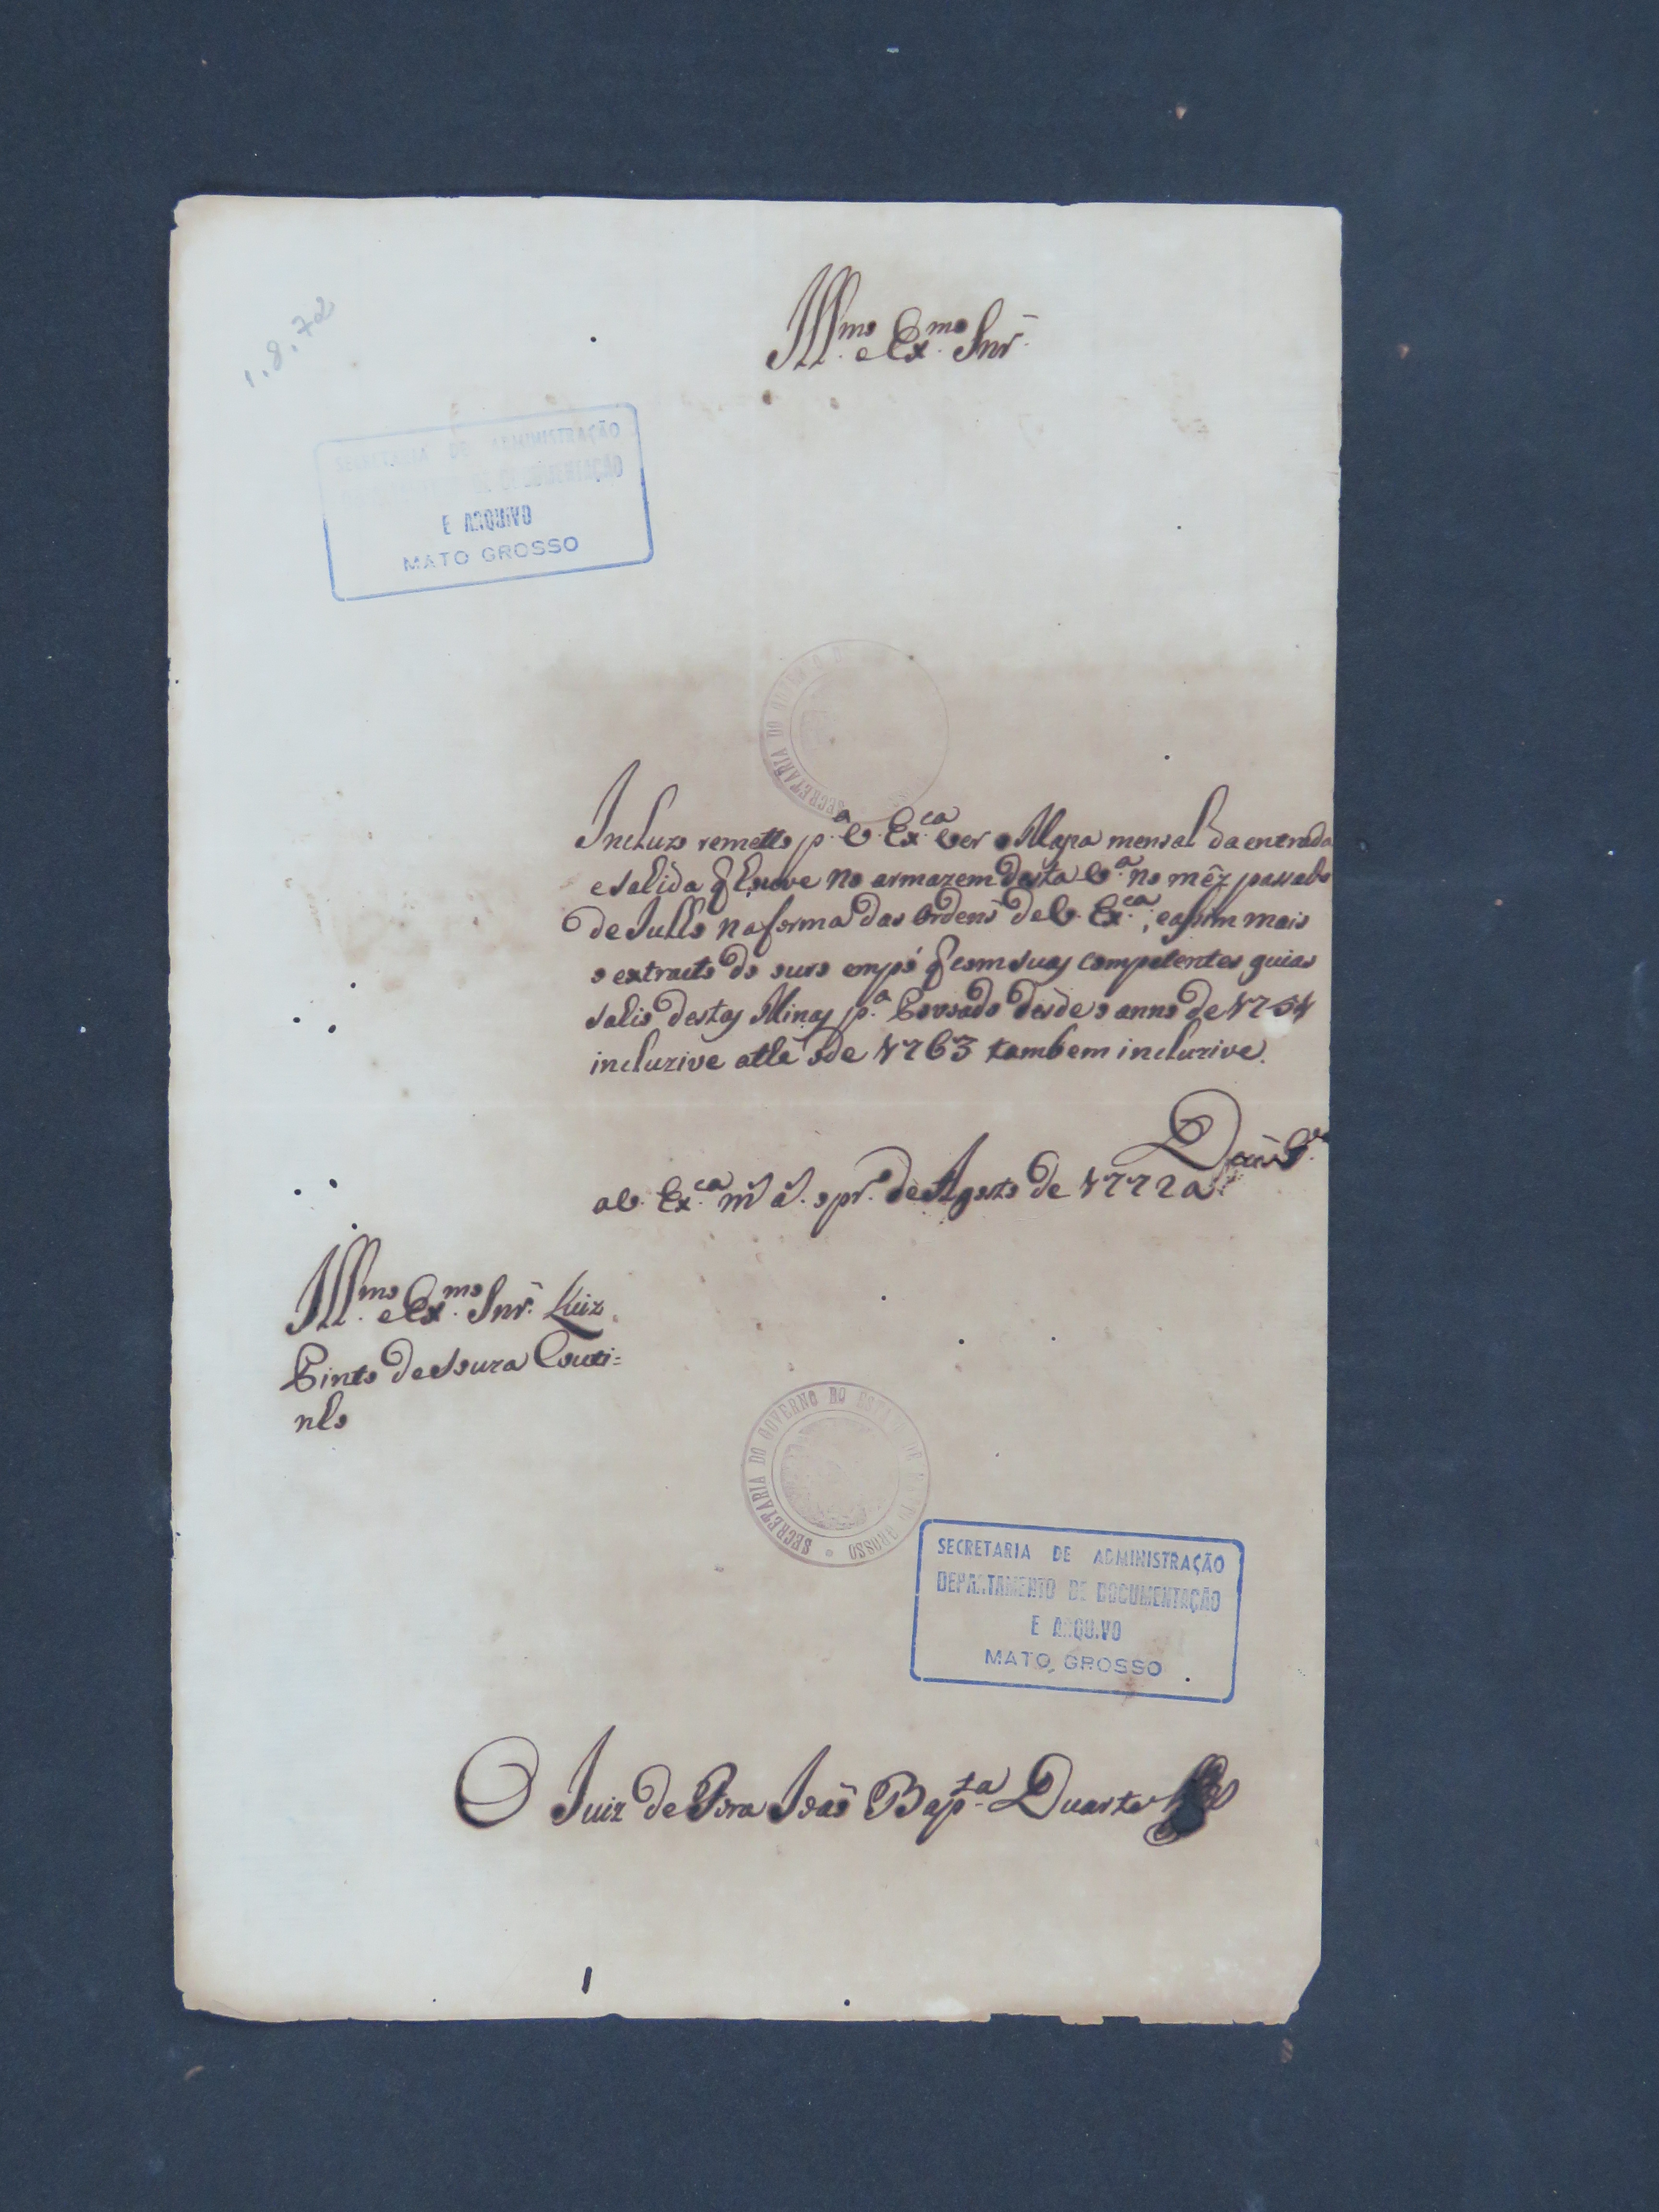 1.8.72
Ill.mo e Ex.mo Snr.
SECRETARIA DE ADMINISTRAÇÃO
DE DOCUMENTAÇÃO
E ARQUIVO
MATO GROSSO
SECRETARIA DO GOVERNO D
Incluzo remetto p.a V. Ex.ca ver o Mapa mensal da entrada
e sahida q̃ houve no armazem desta V.a no mêz passado
de Julho na forma das Ordens de V. Ex.ca, e assim mais
o extracto do ouro em pó q̃ com suas competentes guias
sahio destas Minas p.a Povoado desde o anno de 1754
incluzive atthe o de 1763 tambem incluzive.
Deus G.e
a V. Ex.ca m.s a.s o pr.o de Agosto de 1772 a.
Ill.mo e Ex.mo Snr. Luiz
Pinto de Souza Couti=
nho
SECRETARIA DO GOVERNO DO ESTADO DE MATTO GROSSO
SECRETARIA DE ADMINISTRAÇÃO
DEPARTAMENTO DE DOCUMENTAÇÃO
E ARQUIVO
MATO GROSSO
O Juiz de Fora João Bap.ta Duarte